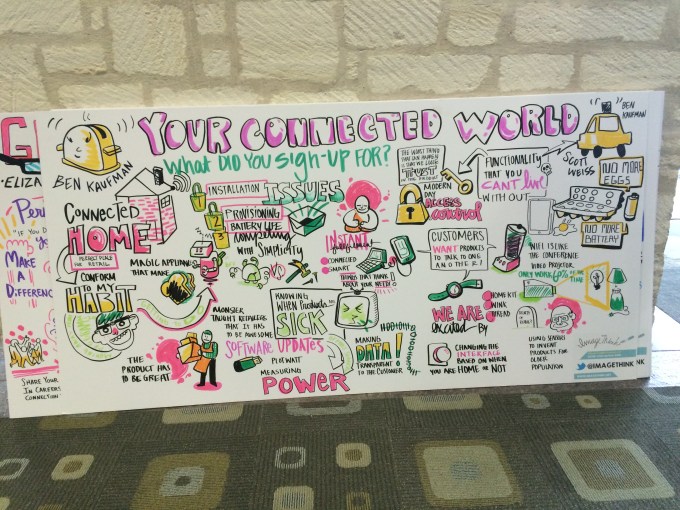 YOUR CONNECTED WORLD
WHAT DID YOU SIGN-UP FOR?
BEN KAUFMAN
CONNECTED
HOME
PERFECT PLACE
FOR RETAIL
CONFORM
TO MY
HABIT
MAGIC APPLIANCES
THAT MAKE
THE
PRODUCT HAS
TO BE GREAT
INSTALLATION ISSUES
PROVISIONING
BATTERY LIFE
WITH SIMPLICITY
MONSTER
TAUGHT RETAILERS
THAT IT HAS
TO BE AWESOME
SOFTWARE UPDATES
MEASURING
POWER
KNOWING
WHEN PRODUCTS ARE
SICK
MAKING
DATA!
TRANSPARENT
TO THE CUSTOMER
INSTANT
CONNECTED
SMART
THINGS THAT THINK
ABOUT YOUR NEEDS!
THE WORST THING
THAT CAN HAPPEN
IS THAT WE LOSE
TRUST
MODERN
DAY
ACCESS
CONTROL
CUSTOMERS
WANT PRODUCTS
TO TALK TO ONE
ANOTHER!
WE ARE
EXECUTED BY
HOMEKIT
WINK
THREAD
CHANGING THE
INTERFACE
BASED ON WHEN
YOU ARE HOME OR NOT
FUNCTIONALITY
THAT YOU
CAN'T LIVE
WITH OUT
SCOTT
WEISS
BEN
KAUFMAN
NO MORE
EGGS
NO MORE
BATTERY
WIFI IS LIKE
THE CONFERENCE
VIDEO PROJECTOR
ONLY WORKS 60% OF THE
TIME
USING SENSORS
TO INVENT
PRODUCTS FOR
OLDER
POPULATION
ImageThink
@IMAGETHINK
NK
G
ELIZA
IF YOU D
MAKE
A
DIFFERENC
SHARE YOUR
IN CAREERS
CONNECTION